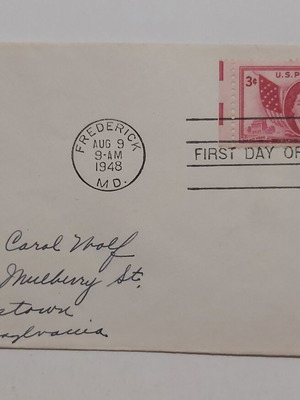 3¢ U.S. P
FREDERICK
AUG 9
9-AM
1948
MD.
FIRST DAY OF
Carol Wolf
Mulberry St.
stown
sylvania